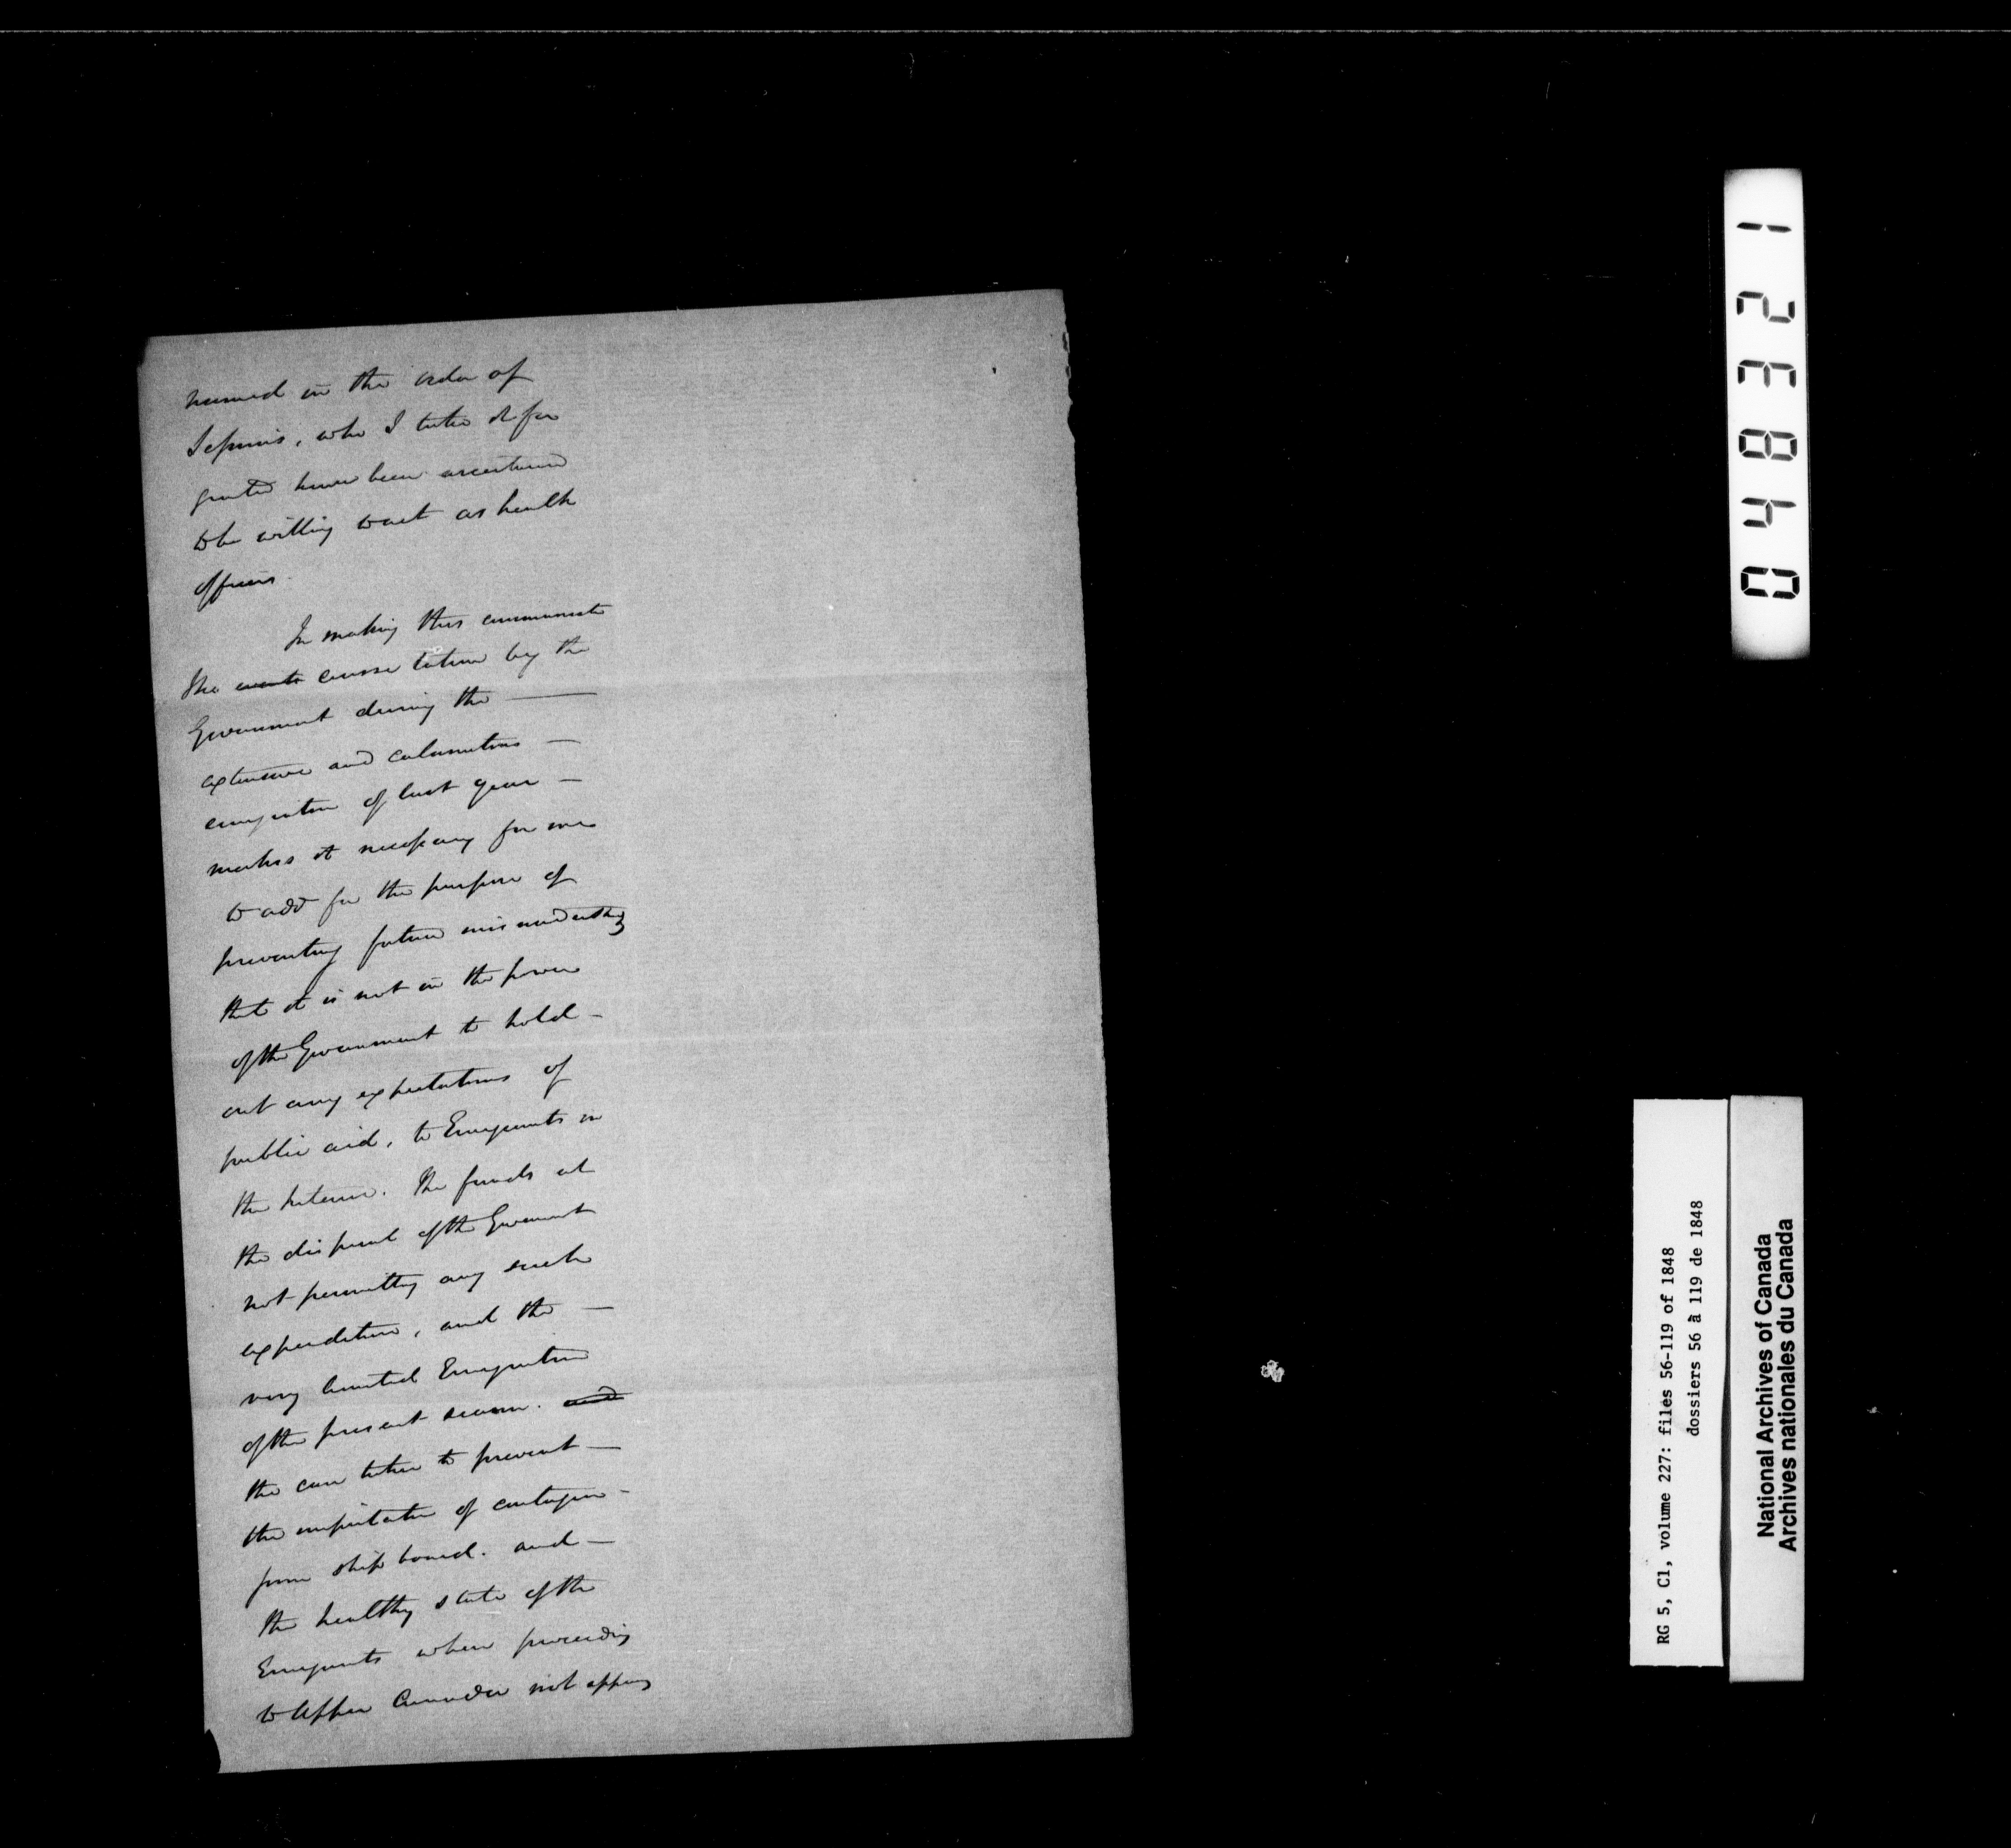 named in the order of
Sessions, who I take it for
granted have been ascertained
to be willing to act as health
officers
In making this communicatn
the events course taken by the
Government during the —
extensive and calamitous —
emigration of last year —
makes it necessary for me
to add for the purpose of
preventing future misunderstdg
that it is not in the power
of the Government to hold —
out any expectations of
public aid, to Emigrants in
the interior. The funds at
the disposal of the Government
not permitting any such
expenditure, and the —
very limited Emigration
of the present season. and
the care taken to prevent —
the importation of contagion —
from ship board. and —
the healthy state of the
Emigrants when proceeding
to Upper Canada not appearg
0 4 8 3 2 1
RG 5, C1, volume 227: files 56-119 of 1848
dossiers 56 à 119 de 1848
National Archives of Canada
Archives nationales du Canada